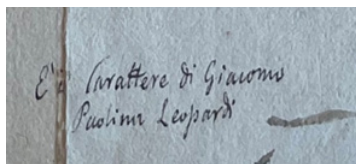 È il Carattere di Giacomo
Paolina Leopardi